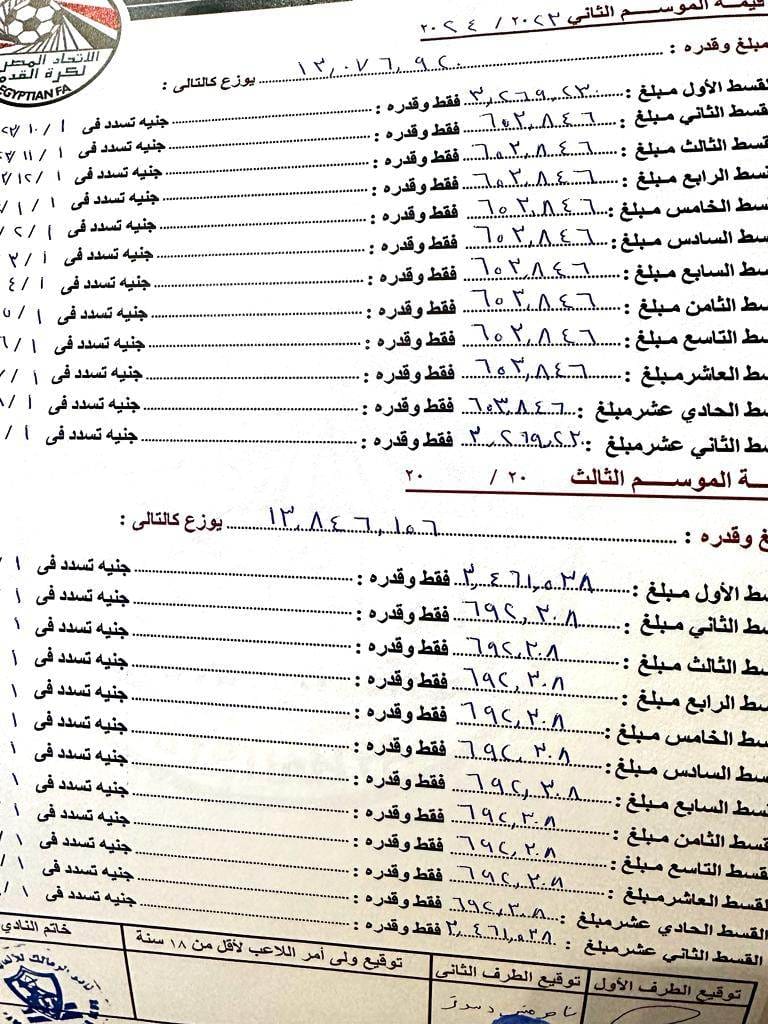 قيمة الموسم الثاني ٢٠٢٣ / ٢٠٢٤
الاتحاد المصر
لكرة القدم
EGYPTIAN FA
مبلغ وقدره : ١٣,٠٧٦,٩٢٠ يوزع كالتالى :
القسط الأول مبلغ : ٣,٢٦٩,٢٣٠ فقط وقدره : جنيه تسدد فى ١ / ١٠ /
القسط الثاني مبلغ : ٦٥٣,٨٤٦ فقط وقدره : جنيه تسدد فى ١ / ١١ /
قسط الثالث مبلغ : ٦٥٣,٨٤٦ فقط وقدره : جنيه تسدد فى ١ / ١٢ /
سط الرابع مبلغ : ٦٥٣,٨٤٦ فقط وقدره : جنيه تسدد فى ١ / ١ /
سط الخامس مبلغ : ٦٥٣,٨٤٦ فقط وقدره : جنيه تسدد فى ١ / ٢ /
سط السادس مبلغ : ٦٥٣,٨٤٦ فقط وقدره : جنيه تسدد فى ١ / ٣
سط السابع مبلغ : ٦٥٣,٨٤٦ فقط وقدره : جنيه تسدد فى ١ / ٤
سط الثامن مبلغ : ٦٥٣,٨٤٦ فقط وقدره : جنيه تسدد فى ١ / ٥
سط التاسع مبلغ : ٦٥٣,٨٤٦ فقط وقدره : جنيه تسدد فى ١ / ٦
سط العاشر مبلغ : ٦٥٣,٨٤٦ فقط وقدره : جنيه تسدد فى ١ / ٧
سط الحادي عشر مبلغ : ٦٥٣,٨٤٦ فقط وقدره : جنيه تسدد فى ١ / ٨
سط الثاني عشر مبلغ : ٣,٢٦٩,٢٣٠ فقط وقدره : جنيه تسدد فى ١ /
ـة الموسم الثالث ٢٠ / ٢٠
غ وقدره : ١٣,٨٤٦,١٥٦ يوزع كالتالى :
سط الأول مبلغ : ٣,٤٦١,٥٣٨ فقط وقدره : جنيه تسدد فى ١ /
سط الثاني مبلغ : ٦٩٢,٣٠٨ فقط وقدره : جنيه تسدد فى ١
سط الثالث مبلغ : ٦٩٢,٣٠٨ فقط وقدره : جنيه تسدد فى ١
سط الرابع مبلغ : ٦٩٢,٣٠٨ فقط وقدره : جنيه تسدد فى ١
سط الخامس مبلغ : ٦٩٢,٣٠٨ فقط وقدره : جنيه تسدد فى ١
سط السادس مبلغ : ٦٩٢,٣٠٨ فقط وقدره : جنيه تسدد فى ١
سط السابع مبلغ : ٦٩٢,٣٠٨ فقط وقدره : جنيه تسدد فى ١
قسط الثامن مبلغ : ٦٩٢,٣٠٨ فقط وقدره : جنيه تسدد فى ١
قسط التاسع مبلغ : ٦٩٢,٣٠٨ فقط وقدره : جنيه تسدد فى ١
لقسط العاشر مبلغ : ٦٩٢,٣٠٨ فقط وقدره : جنيه تسدد فى ١ /
القسط الحادي عشر مبلغ : ٦٩٢,٣٠٨ فقط وقدره : جنيه تسدد فى ١ /
القسط الثاني عشر مبلغ : ٣,٤٦١,٥٣٨ فقط وقدره : جنيه تسدد فى ١ /
توقيع الطرف الأول توقيع الطرف الثاني توقيع ولى أمر اللاعب لأقل من ١٨ سنة خاتم النادي